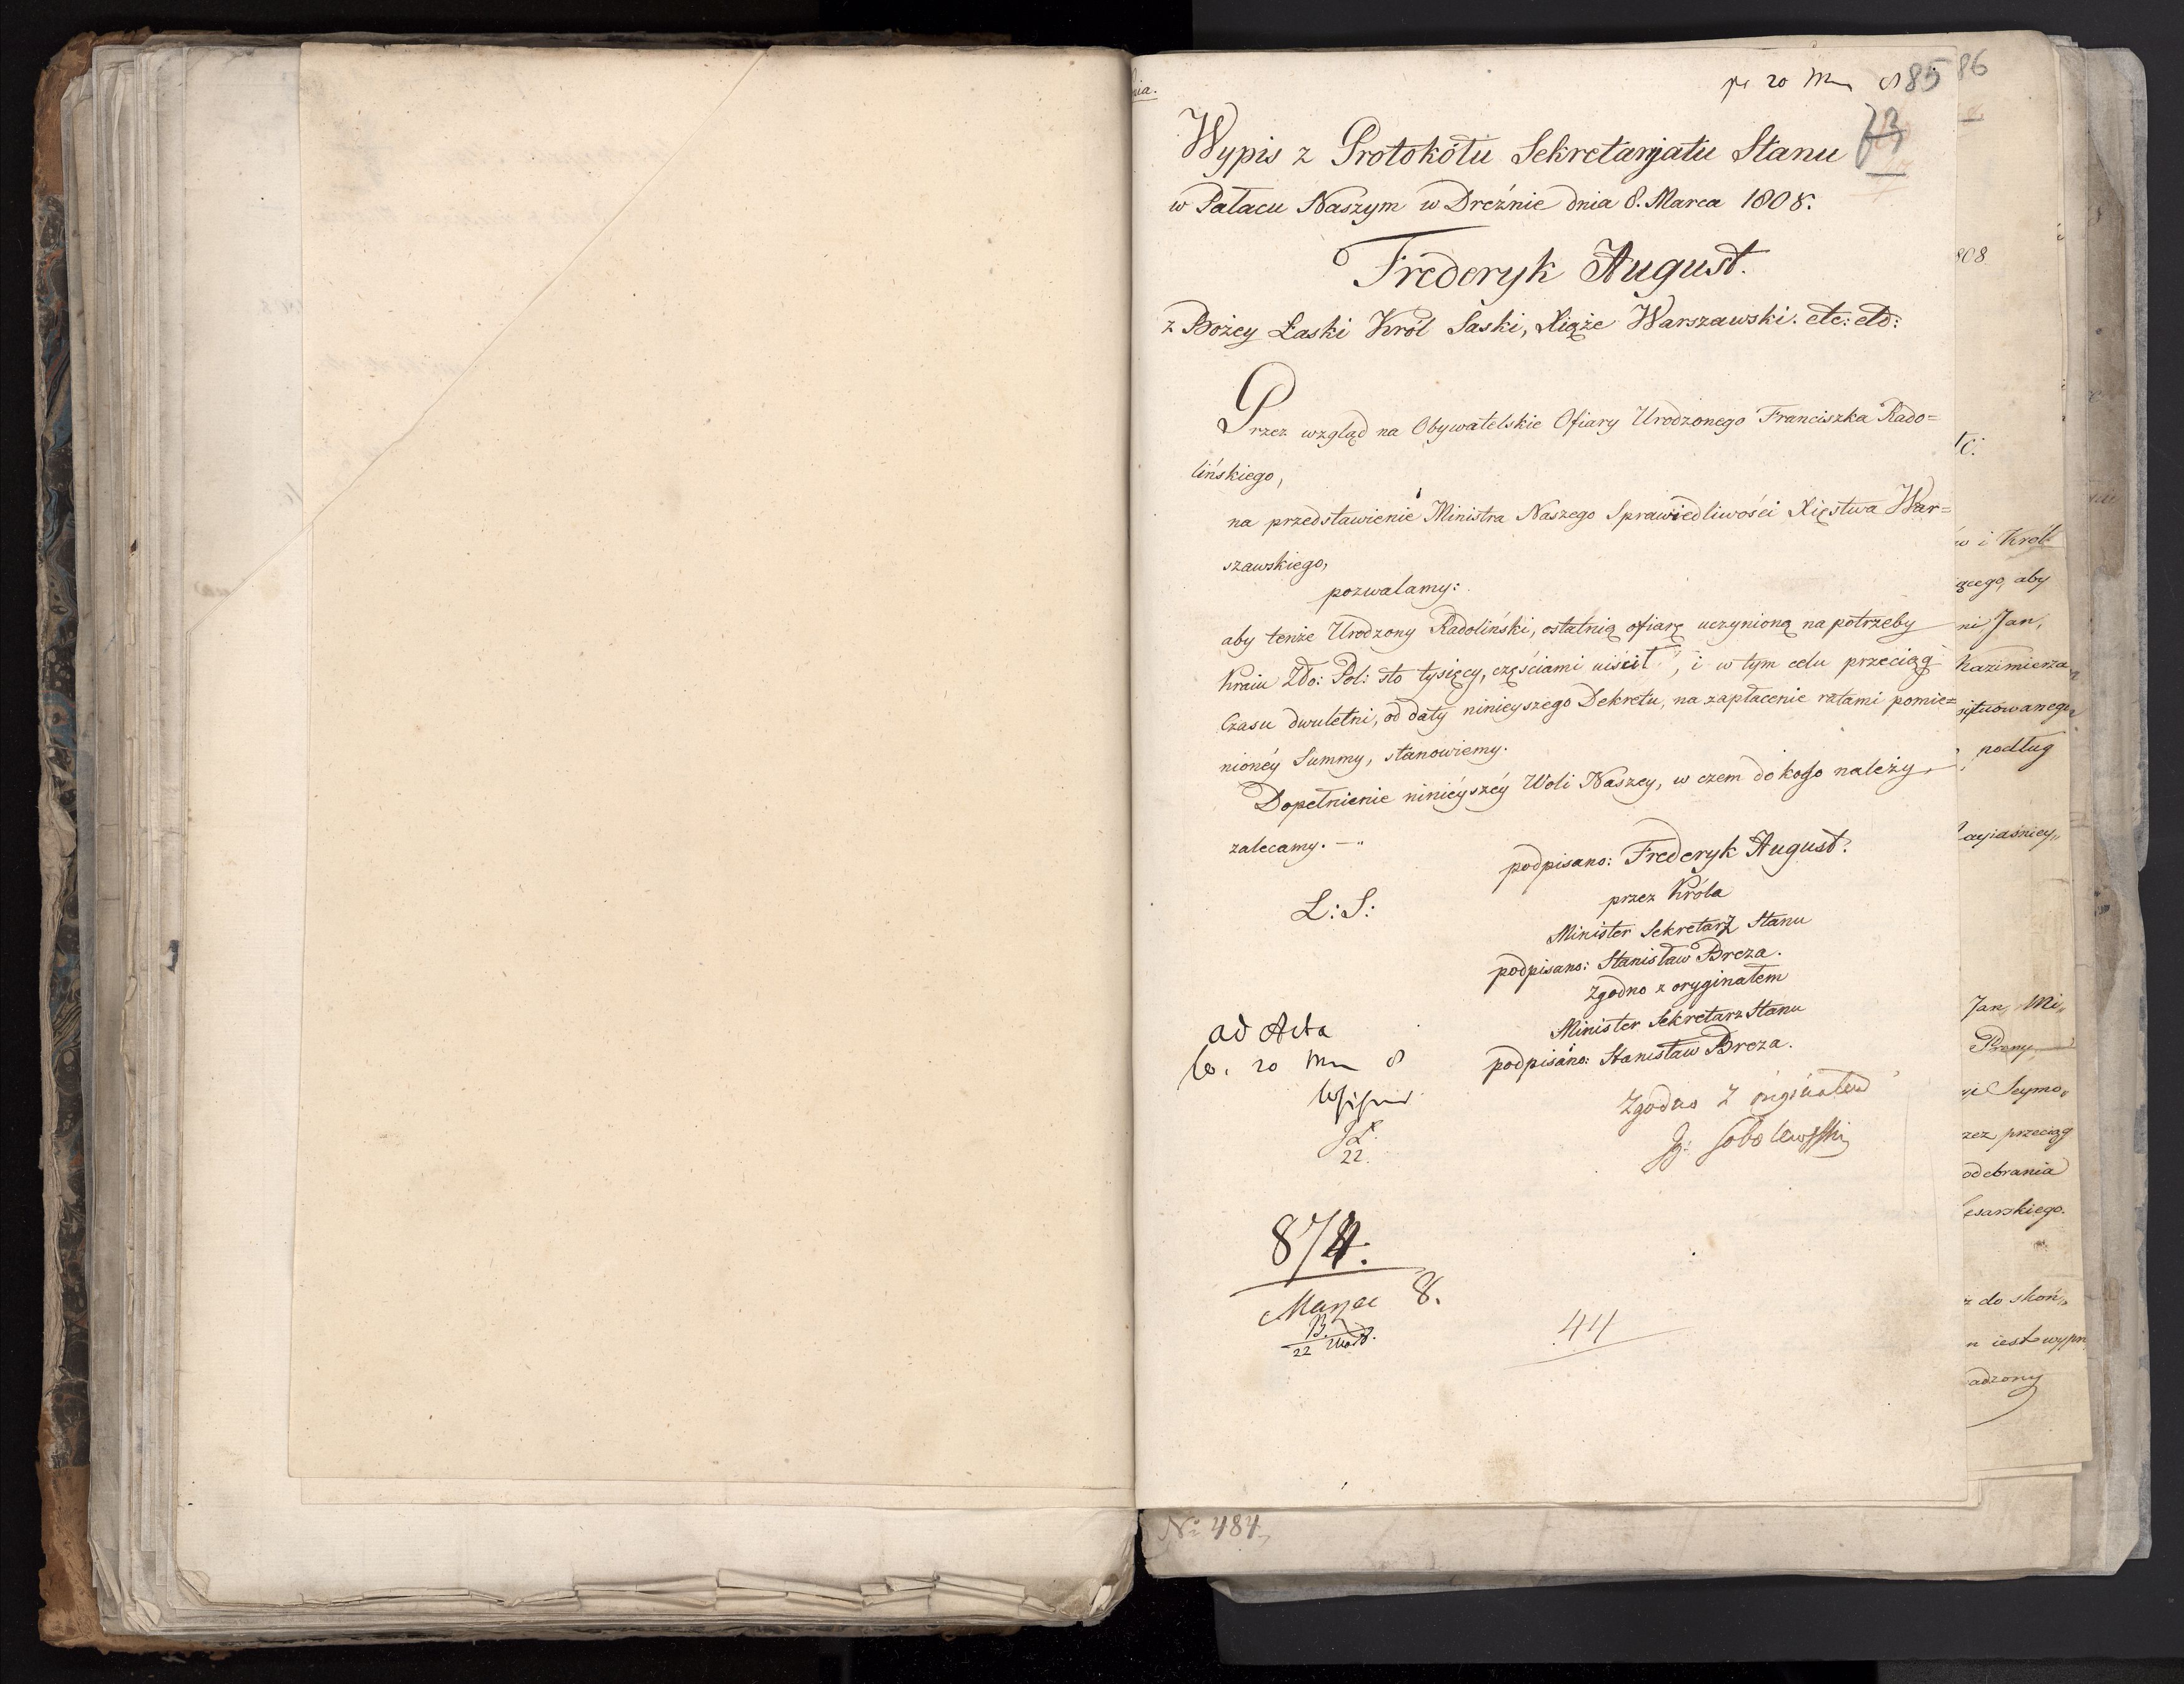 nia.
pr 20 Mrz 8 85 86
73
Wypis z Protokółu Sekretaryatu Stanu
w Pałacu Naszym w Dreźnie dnia 8. Marca 1808.
Frederyk August.
z Bożey Łaski Król Saski, Xiąże Warszawski. etc: etc:
Przez wzgląd na Obywatelskie Ofiary Urodzonego Franciszka Rado=
lińskiego,
na przedstawienie Ministra Naszego Sprawiedliwości Xięstwa War=
szawskiego,
pozwalamy:
aby tenże Urodzony Radoliński, ostatnią ofiarę uczynioną na potrzeby
Kraiu Zło: Pol: sto tysięcy, częściami uiścił, i w tym celu przeciąg
Czasu dwuletni, od daty ninieyszego Dekretu, na zapłacenie ratami pomie=
nionéy Summy, stanowiemy.
Dopełnienie niniéyszéy Woli Naszey, w czem do kogo należy,
zalecamy. —„
podpisano: Frederyk August.
L: S:
przez Króla
Minister Sekretarz Stanu
podpisano: Stanisław Breza.
Zgodno z oryginałem
Minister Sekretarz Stanu
podpisano: Stanisław Breza.
ad Acta
20 8
22.
Zgodno z
Sobolewski
874.
Marzec 8.
22
44
No 484
808
tc:
w i Król
ącego, aby
ni Jan,
Kazimierza
situowanego
podług
ayiaśniey„
Jan, Mi„
Seymo„
zez przeciąg
odebrania
esarskiego.
z do skoń„
n iest wypr
adzony